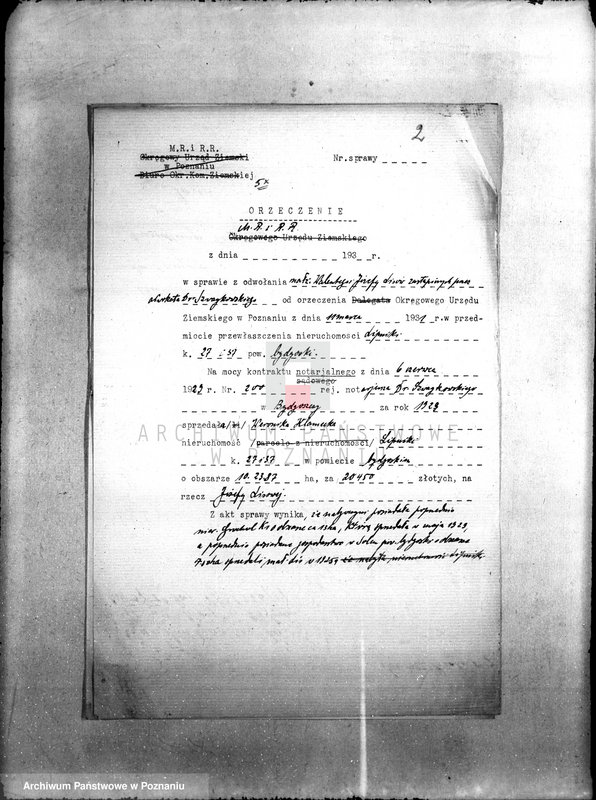 2
M.R.i R.R.
Okręgowy Urząd Ziemski
w Poznaniu
Biuro Okr.Kom.Ziemskiej
Nr.sprawy
ORZECZENIE
M.R. i R.R.
Okręgowego Urzędu Ziemskiego
z dnia 193 r.
w sprawie z odwołania małż. Walentego i Józefy zastąpionych przez
adwokata Dr. Szwajkowskiego od orzeczenia Delegata Okręgowego Urzędu
Ziemskiego w Poznaniu z dnia 10 marca 1931 r.w przed-
miocie przewłaszczenia nieruchomości Lipniki
k. 27 i 37 pow. bydgoski.
Na mocy kontraktu notarjalnego z dnia 6 czerwca
sądowego
1929 r. Nr. 200 rej. notarjusza Dr. Szwajkowskiego
w Bydgoszczy za rok 1929
sprzedała/li/ Weronika
nieruchomość /parcelę z nieruchomości/ Lipniki
k. 27 i 37 w powiecie bydgoskim
o obszarze 10.2387 ha, za 20450 złotych, na
rzecz Józefy
Z akt sprawy wynika, że nabywcy posiadali poprzednio
nier. ha, którą sprzedali w maju 1929,
a poprzednio posiadane gospodarstwo w Solcu pow. bydgoski o obszarze
ha sprzedali w 1925 r. że nabyta nieruchomość Lipniki
ARCHIWUM PAŃSTWOWE
W POZNANIU
Archiwum Państwowe w Poznaniu